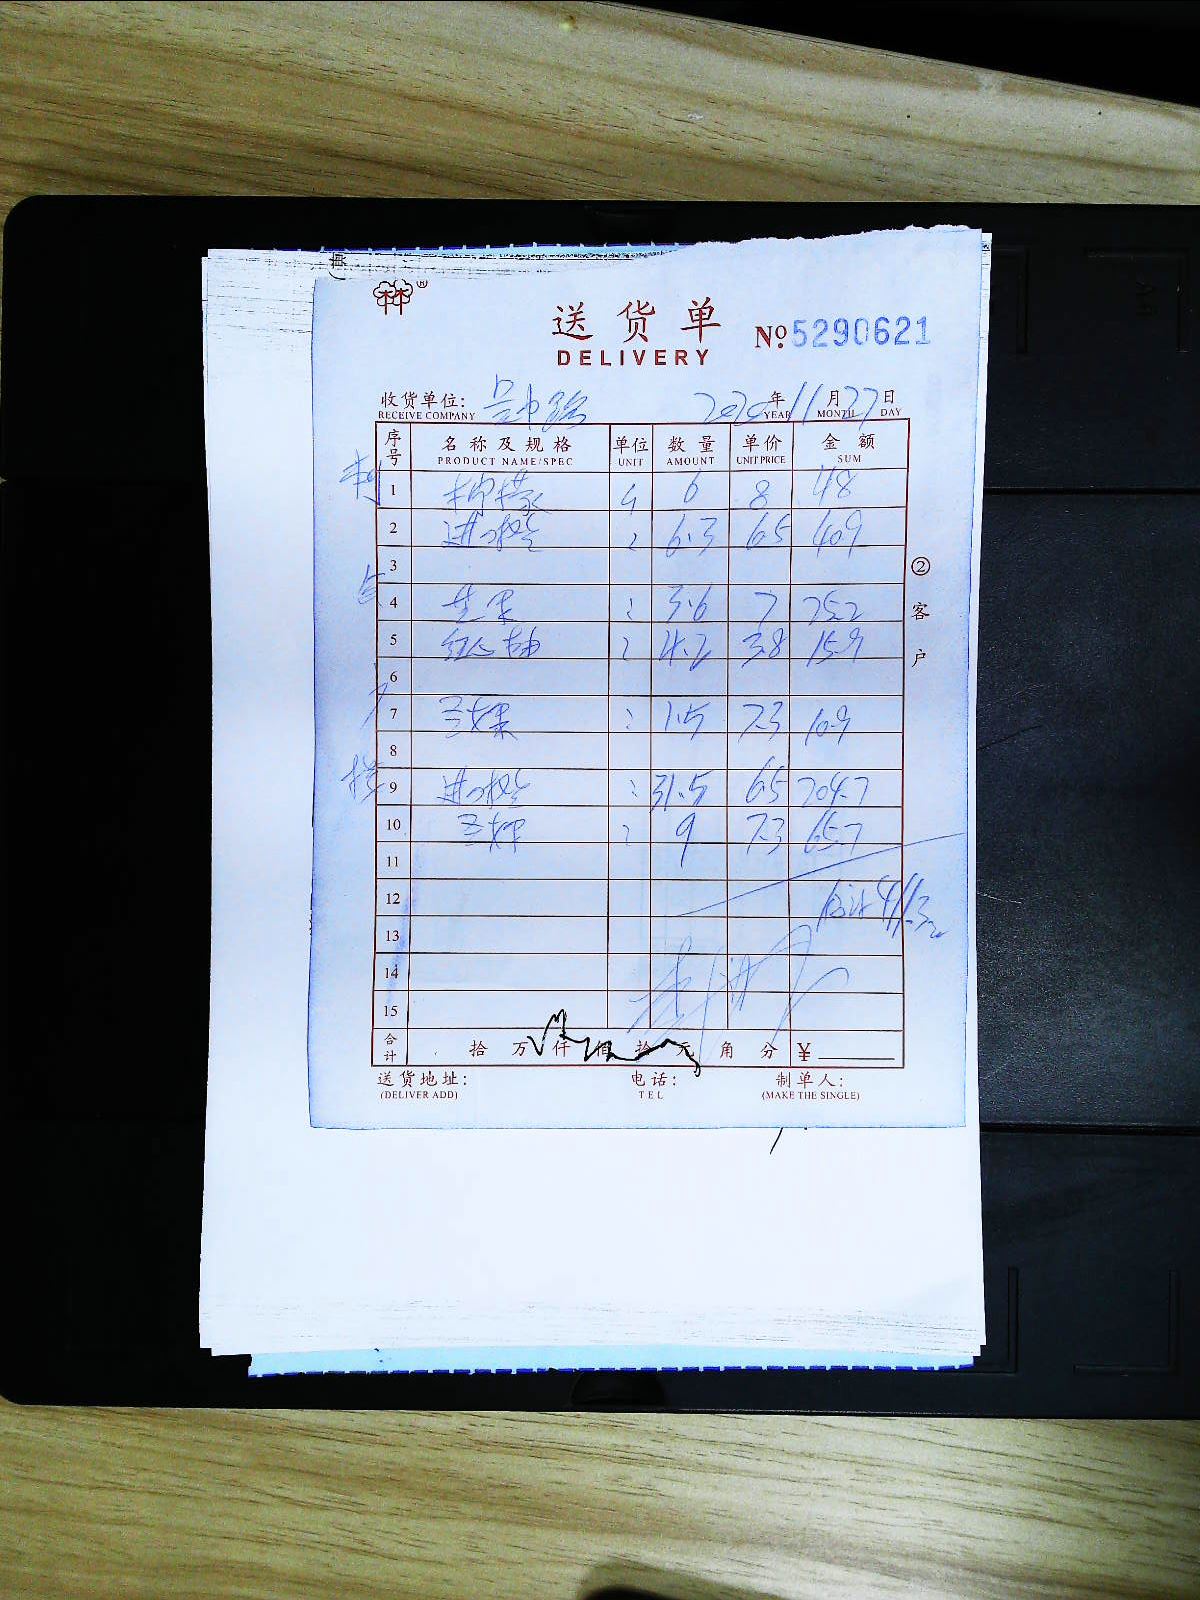 林林®
送货单
DELIVERY
Nº 5290621
收货单位:
RECEIVE COMPANY
2020年11月27日
YEAR MONTH DAY
序号 名称及规格 单位 数量 单价 金额
PRODUCT NAME/SPEC UNIT AMOUNT UNIT PRICE SUM
1 柠檬 6 8 48
2 进口橙 6.3 6.5 40.9
3
4 芒果 3.6 7 25.2
5 红心柚 4.2 3.8 15.9
6
7 1.5 7.3 10.9
8
9 进口橙 31.5 6.5 204.7
10 9 7.3 65.7
11
12 总计411.3元
13
14
15
合计 拾 万 仟 佰 拾 元 角 分 ¥
送货地址: 电话: 制单人:
(DELIVER ADD) TEL (MAKE THE SINGLE)
②客户